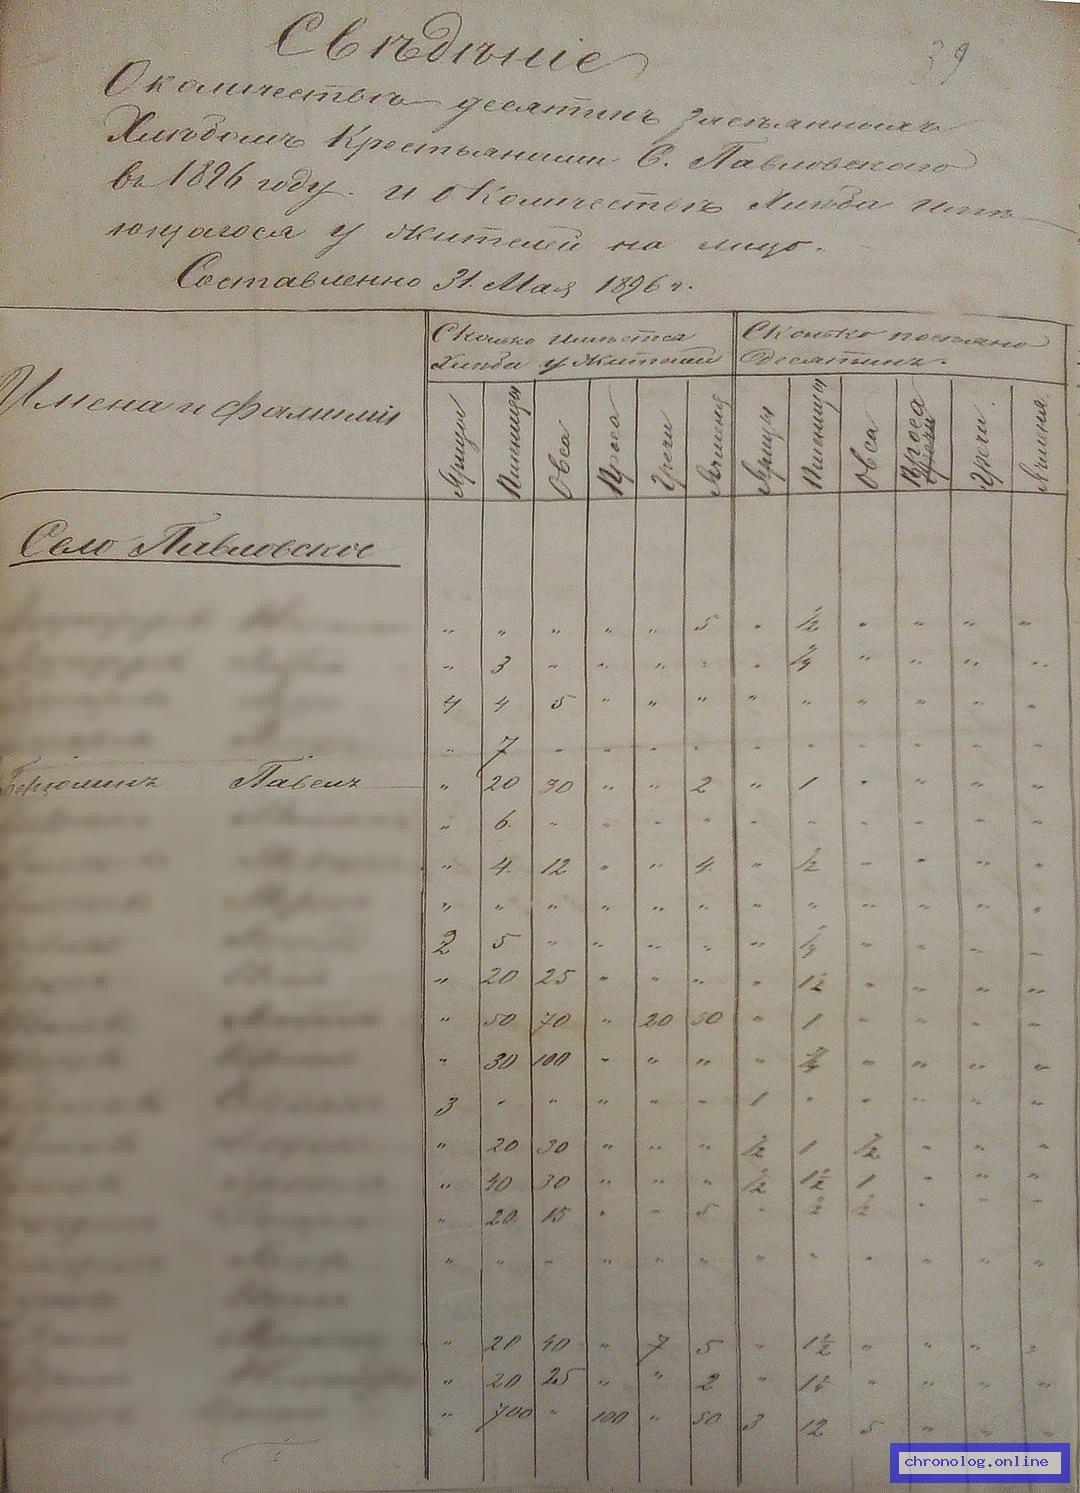 Свѣдѣніе
39
О количествѣ десятинъ засѣянныхъ
Хлѣбомъ Крестьянами С. Павловскаго
въ 1896 году. и о количествѣ Хлѣба имѣ
ющагося у жителей на лицо.
Составленно 31. Мая 1896 г.
Имена и фамилии
Сколько имѣется
Хлѣба у Жителей
Сколько посѣяно
Десятинъ.
Ярицы Пшеницы Овса Проса Гречи Ячменя Ярицы Пшеницы Овса Проса Гречи Ячменя
Село Павловское
" " " " " 5 " 1/2 " " " "
" 3 " " " " " 1/4 " " " "
4 4 5 " " " " " " " " "
" 7 " " " " " " " " " "
Павелъ " 20 30 " " 2 " 1 " " " "
" 6. " " " " " " " " " "
" 4. 12 " " 4. " 1/2 " " " "
" " " " " " " " " " " "
2 5 " " " " " 1/4 " " " "
" 20 25 " " " " 1 1/2 " " " "
" 50 70 " 20 50 " 1 " " " "
" 30 100 " " " " 3/4 " " " "
3 " " " " " 1 " " " " "
" 20 30 " " " 1/2 1 1/2 " " "
" 40 30 " " " 1/2 1 1/2 1 " " "
" 20 15 " " 5 " 1/2 " " "
" " " " " " " " " " " "
" 20 40 " 7 5 " 1 1/2 " " " "
" 20 25 " " 2 " " " " "
" 700 " 100 " 50 3 12 5 " " "
chronolog.online